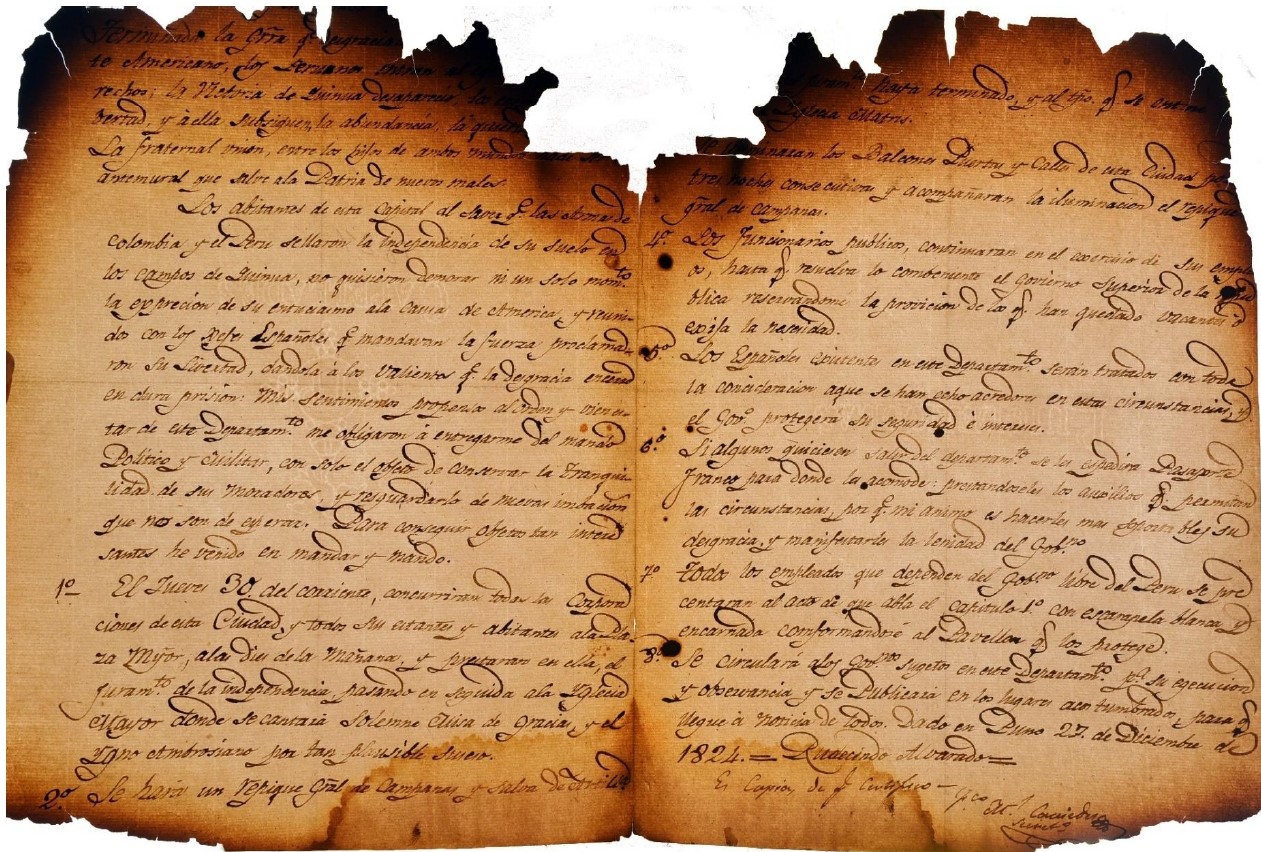 Terminada la Grra q.e desgracia
te Americano, los Peruanos entran al
rechos; la Victoria de Quinua desaparece los
vertad, y á ella subsiguen la abundancia, la quietu
La fraternal union, entre los hijos de ambos mundos
antemural que salve ala Patria de nuevos males.
Los abitantes de esta Capital al saver q.e las Armas de
Colombia y el Peru sellaron la independencia de su suelo en
los campos de Quinua, no quisieron demorar ni un solo mom.to
la exprecion de su entuciasmo ala causa de America, y reuni-
dos con los Jefes Españoles q.e mandavan la fuerza proclama-
ron su Livertad, dandola á los valientes q.e la desgracia encerro
en dura prision: Mis sentimientos propensos al orden y viene
tar de este Departam.to me obligaron á entregarme del mando
Politico y Militar, con solo el objeto de conservar la Tranqui-
lidad de sus moradores, y resguarderlo de nuevas imbacion
que nos son de esperar. Para conseguir objetos tan intere
santes he venido en mandar y mando.
1º El Jueves 30 del corriente, concurriran todas las Corpora
ciones de esta Ciudad, y todos sus estantes y abitantes ala Pla-
za Mayor, alas dies de la Mañana, y prestaran en ella, el
Juram.to de la independencia, pasando en seguida ala Yglecia
Mayor donde se cantará solemne Misa de gracias, y el
Ygno Ambrosiano por tan plausible suceso.
2º Se hará un repique Gral de Campanas y salva de Artill.a
Juram.to hasta terminado, y al tpo. q.e se entre
Yglecia Matris.
Se iluminaran los Balcones Puertas y Calles de esta Ciudad por
tres noches consecutivas y acompañaran la iluminacion el repique
gral de campanas.
4º Los Funcionarios publicos, continuaran en el exercicio de sus emple
os, hasta q.e resuelva lo combeniente el Govierno Superior de la Repu
blica reservandome la provicion de los q.e han quedado vacantes ó
exija la necesidad.
5º Los Españoles existentes en este Departam.to seran tratados con toda
la concideracion aque se han echo acredores en estas circunstancias, y
el Gov.o protegera su seguridad é interes.
6º Si algunos quiciesen salir del departam.to se les espedira Pasaporte
Franco para donde la acomode: prestandoseles los auxilios q.e permitan
las circunstancias, por q.e mi animo es hacerles mas soportables su
desgracia, y manifestarles la lenidad del Gob.no
7º Todos los empleados que dependen del Gob.no libre del Peru se pre
centaran al acto de que abla el capitulo 1º con escarapela blanca y
encarnada comformandose al Pavellon q.e los protege.
8º Se circulará alos Gob.nos sugetos en este Departam.to p.a su egecucion
y obcervancia, y se Publicará en los lugares acostumbrados, para q.e
llegue á noticia de todos. Dado en Puno 27. de Diciembre de
1824.= Rudecindo Alvarado=
Es Copia, de q.e Certifico-